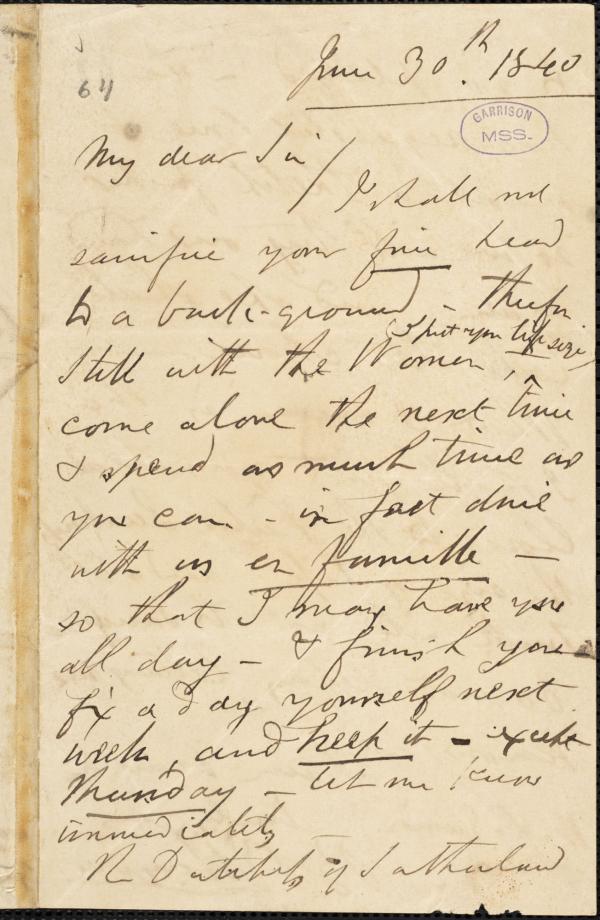 64
June 30th. 1840
GARRISON
MSS.
My dear Sir / I shall not
sacrifice your fine head
to a back-ground - therefore
(I put you life size)
Still with the Women,
come alone the next time
& spend as much time as
you can - in fact dine
with us en famille -
so that I may have you
all day - & finish you -
fix a day yourself next
week, and keep it - except
Thursday - let me know
immediately
Duchess of Sutherland